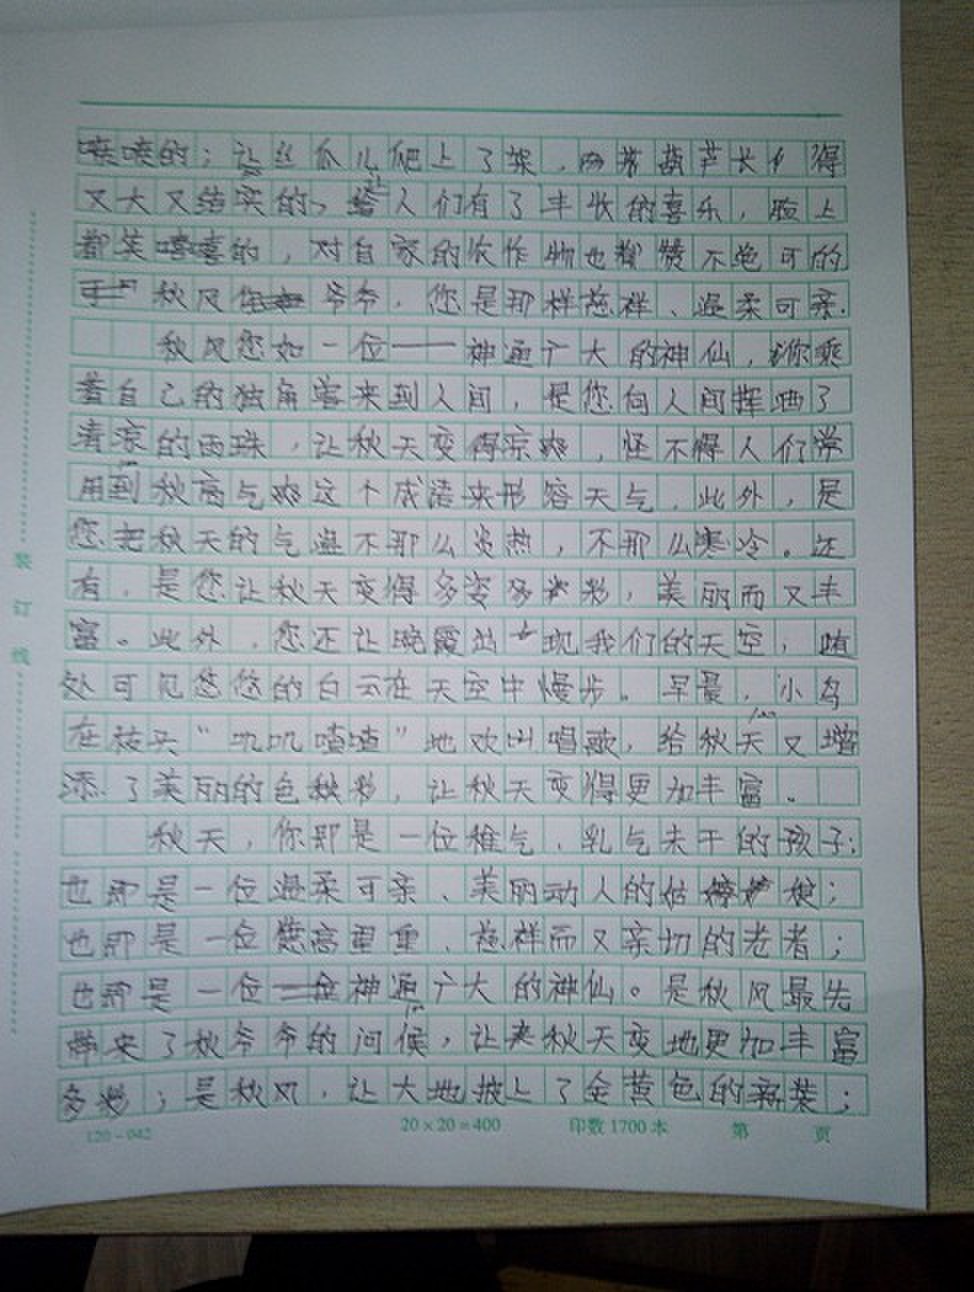 喷喷的；让丝瓜儿爬上了架，葫芦长得
又大又结实的，给人们有了丰收的喜乐，脸上
都笑嘻嘻的，对自家的农作物也都赞不绝可的
秋风爷爷，您是那样慈祥、温柔可亲.
秋风您如一位——神通广大的神仙，你乘
着自己的独角兽来到人间，是您向人间挥洒了
清凉的雨珠，让秋天变得凉爽，怪不得人们常
用到秋高气爽这个成语来形容天气，此外，是
您把秋天的气温不那么炎热，不那么寒冷。还
有，是您让秋天变得多姿多彩，美丽而又丰
富。此外，您还让晚霞出现我们的天空；随
处可见悠悠的白云在天空中慢步。早晨，小鸟
在枝头“叽叽喳喳”地欢叫唱歌，给秋天又增
添了美丽的色彩，让秋天变得更加丰富。
秋天，你即是一位稚气、乳气未干的孩子；
也即是一位温柔可亲、美丽动人的姑娘；
也即是一位德高重重、慈祥而又亲切的老者；
也即是一位神通广大的神仙。是秋风最先
带来了秋爷爷的问候，让秋天变地更加丰富
多彩；是秋风，让大地披上了金黄色的新装；
装订线
120-042
20×20=400
印数1700本
第 页